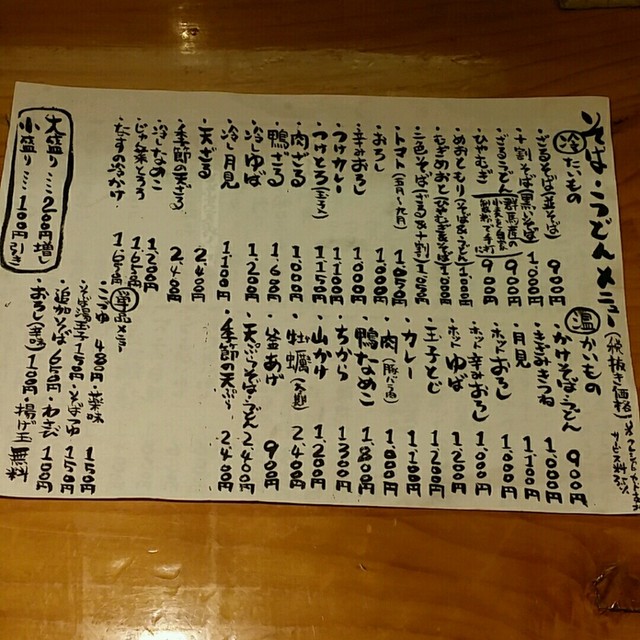 そば・うどんメニュー
(税抜き価格)
冷たいもの
・ざるそば(並そば) 900円
・十割そば(黒いそば) 1.000円
・ざるうどん 900円
・ひやむぎ 900円
・めおともり(そば&うどん) 1.000円
・むぎめおと(ひやむぎ&そば) 1.000円
・二色そば(ざる&十割) 1.100円
・トマト(五月〜九月) 1.050円
・おろし 1.000円
・辛みおろし 1.000円
・つけカレー 1.100円
・つけとろ 1.150円
・肉ざる 1.000円
・鴨ざる 1.600円
・冷しゆば 1.200円
・冷し月見 1.100円
・天ざる 2.400円
・季節の天ざる 2.400円
・冷しなめこ 1.200円
・じゅん菜とろろ 1.650円
・なすのひやかけ 1.650円
大盛り ミ 200円増
小盛り ミ 100円引き
温かいもの
・かけそば・うどん 900円
・きざみきつね 1.000円
・月見 1.100円
・ホットおろし 1.000円
・ホット辛みおろし 1.000円
・ホットゆば 1.200円
・玉子とじ 1.200円
・カレー 1.100円
・肉(豚バラ肉) 1.000円
・鴨なめこ 1.800円
・ちから 1.300円
・山かけ 1.200円
・牡蠣(冬期) 2.400円
・釜あげ 900円
・天ぷらそば・うどん 2.400円
・季節の天ぷら 2.400円
単品メニュー
・そば湯玉子 150円
・追加そば 650円
・おろし(辛味) 100円
・薬味 150円
・そばつゆ 150円
・わさび 100円
・揚げ玉 無料